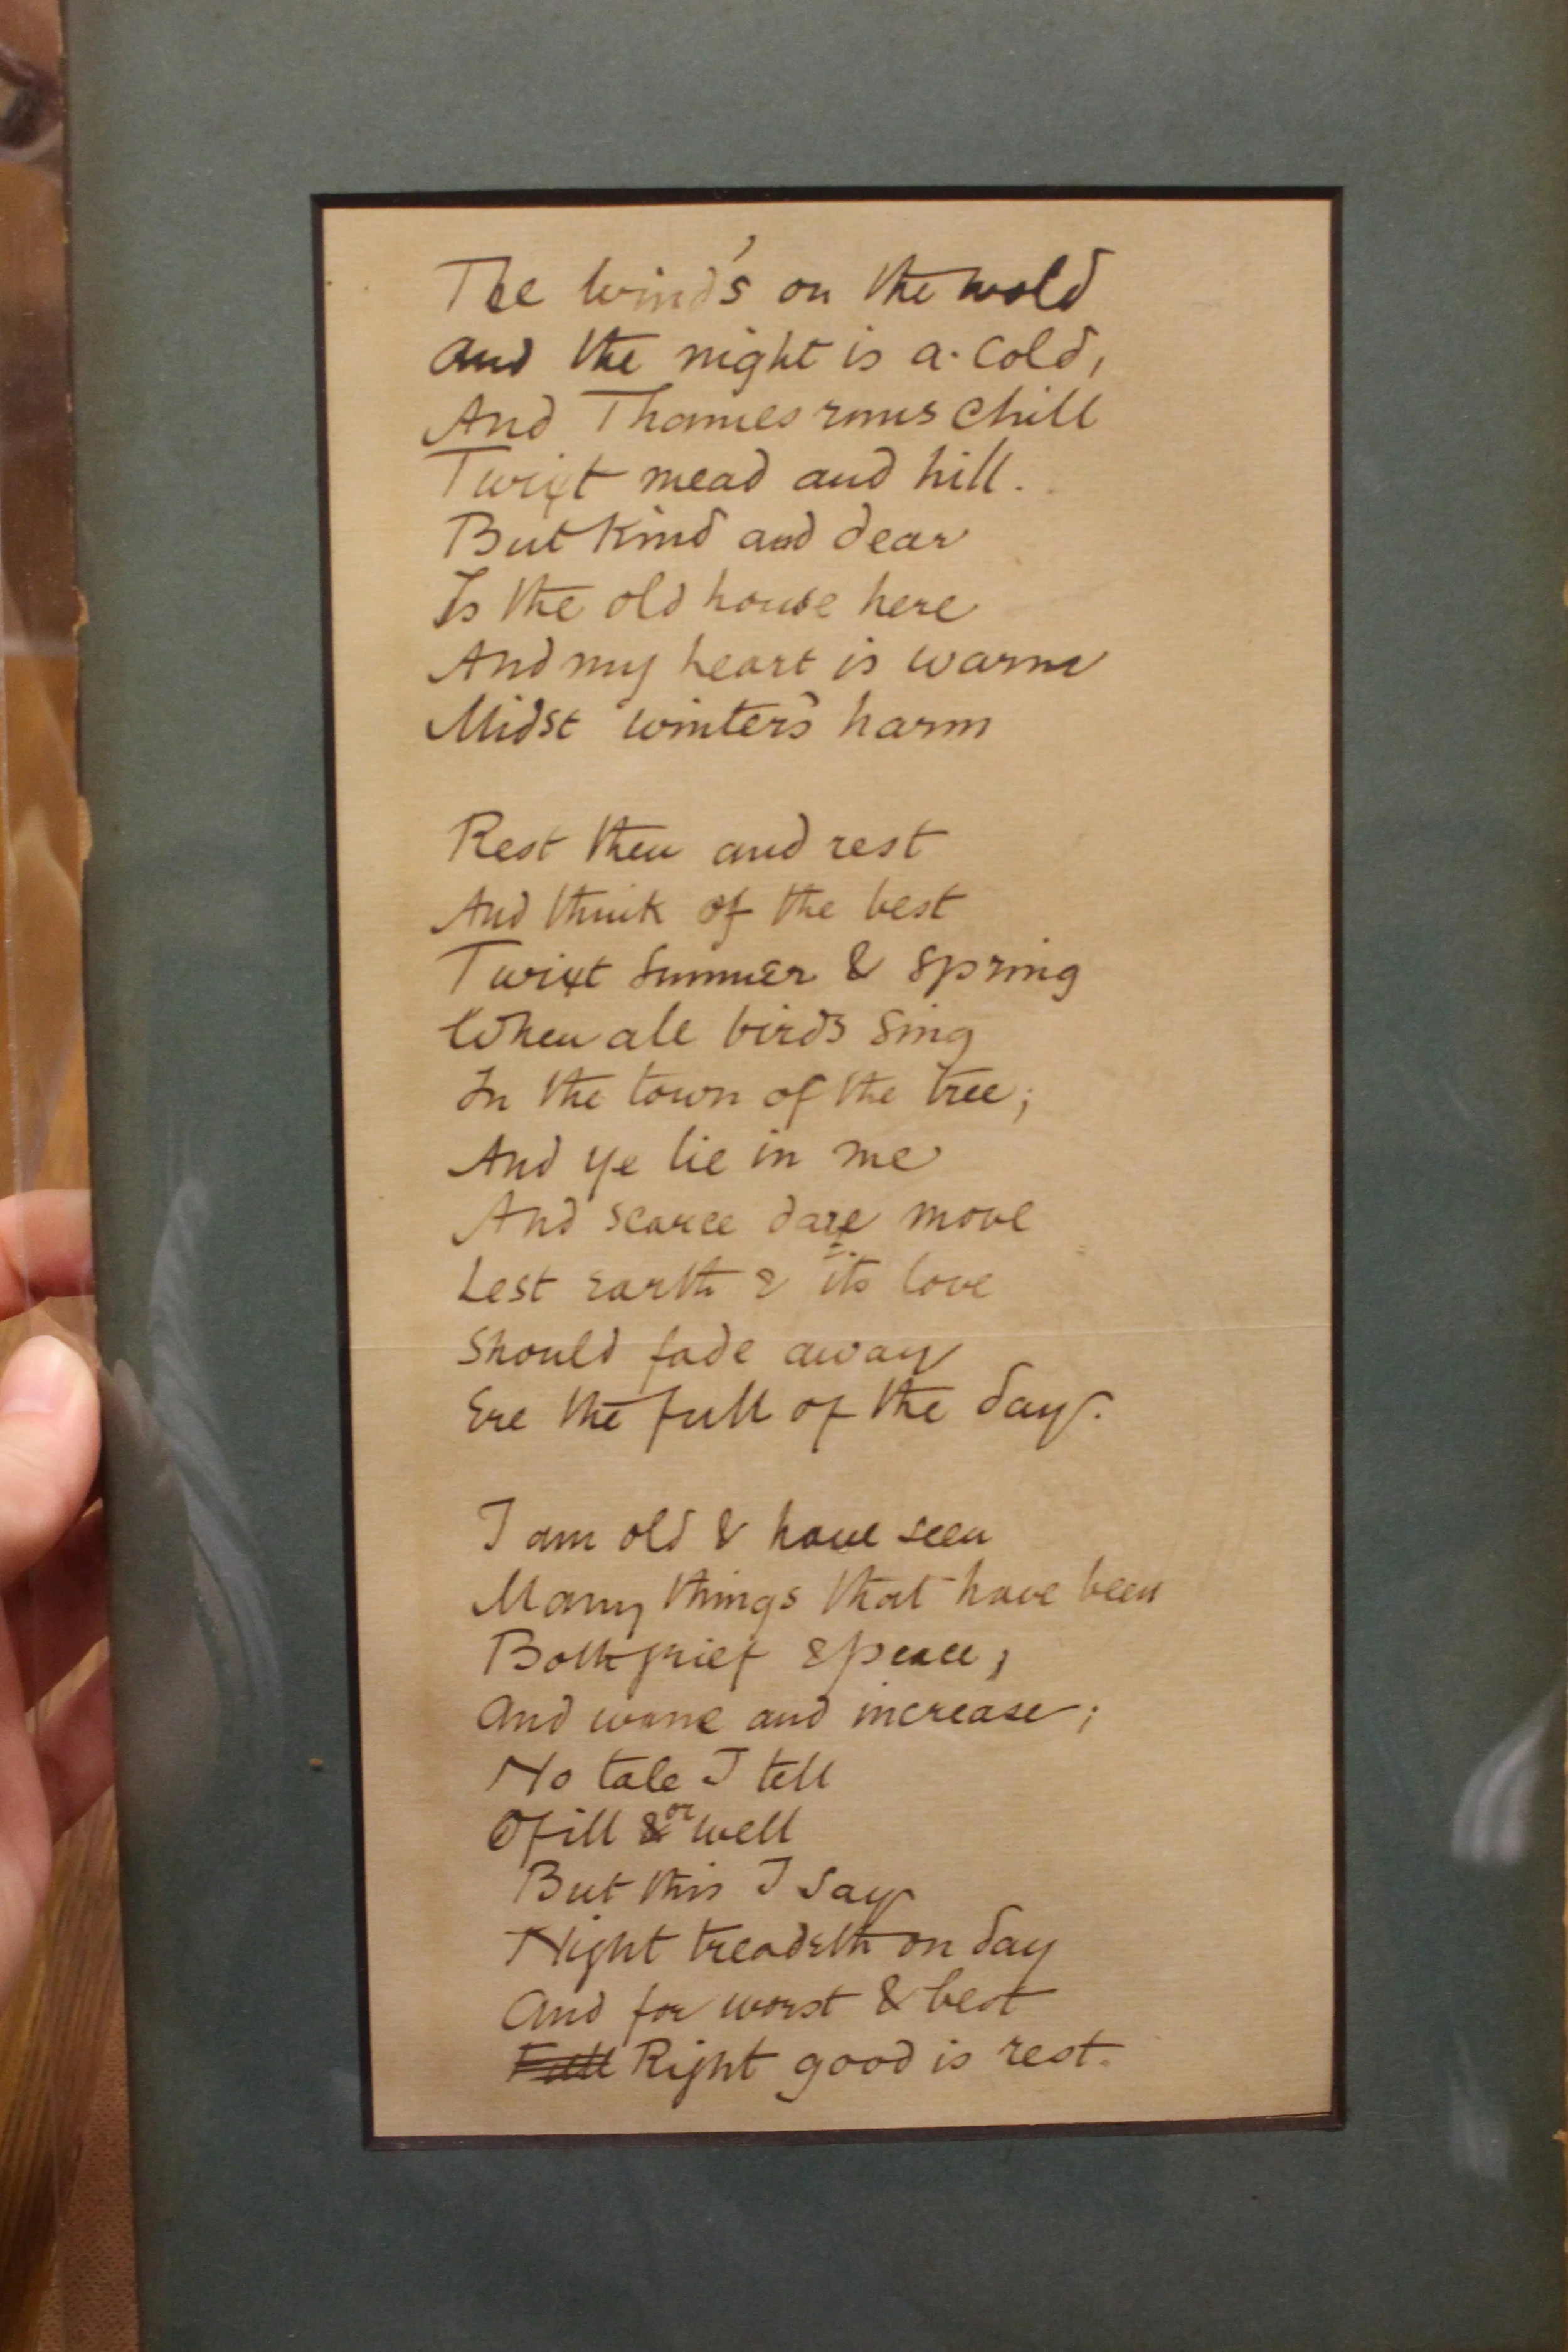 The wind's on the wold
And the night is a-cold,
And Thames runs chill
Twixt mead and hill.
But kind and dear
Is the old house here
And my heart is warm
Midst winter's harm
Rest then and rest
And think of the best
Twixt summer & spring
When all birds sing
In the town of the tree;
And ye lie in me
And scarce dare move
Lest earth & its love
Should fade away
Ere the full of the day.
I am old & have seen
Many things that have been
Both grief & peace;
And wane and increase;
No tale I tell
Of ill & or well
But this I say
Night treadeth on day
And for worst & best
Full Right good is rest.